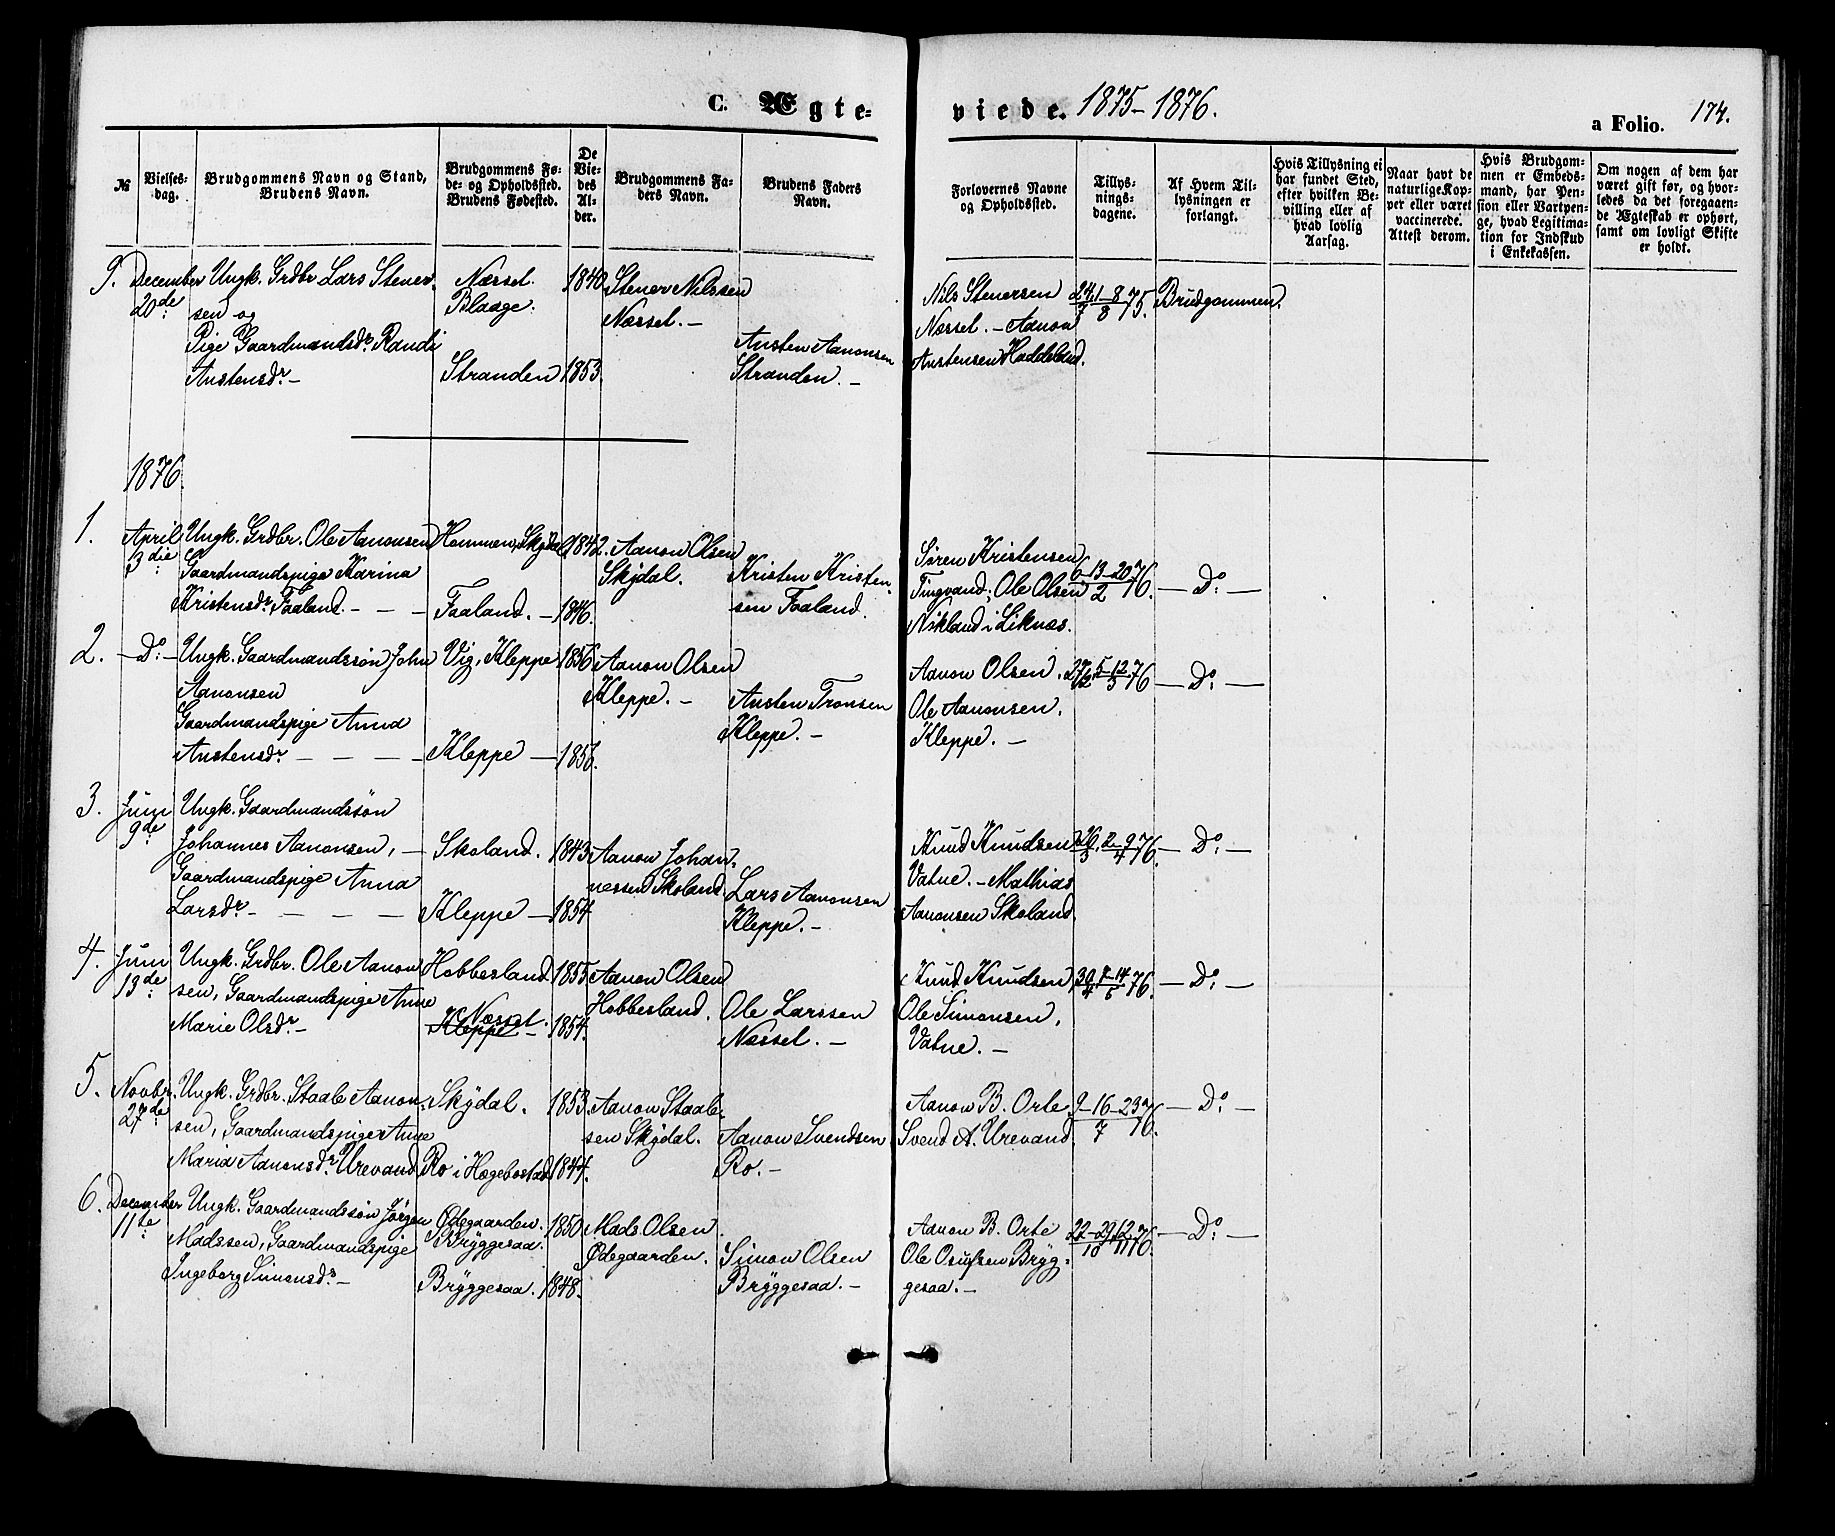 C. Ægte-
viede. 1875-1876.
a Folio. 174.
№
Vielses-
dag.
Brudgommens Navn og Stand,
Brudens Navn.
Brudgommens Fø-
de- og Opholdssted.
Brudens Fødested.
De
Vie-
des
Al-
der.
Brudgommens Fa-
ders Navn.
Brudens Faders
Navn.
Forlovernes Navne
og Opholdssted.
Tillys-
nings-
dagene.
Af Hvem Til-
lysningen er
forlangt.
Hvis Tillysning ei
har fundet Sted,
efter hvilken Be-
villing eller af
hvad lovlig
Aarsag.
Naar havt de
naturlige Kop-
per eller været
vaccinerede.
Attest derom.
Hvis Brudgom-
men er Embeds-
mand, har Pen-
sion eller Vartpen-
ge, hvad Legitima-
tion for Indskud
i Enkekassen.
Om nogen af dem har
været gift før, og hvor-
ledes da det foregaaen-
de Ægteskab er ophørt,
samt om lovligt Skifte
er holdt.
9.
December
20de
Ungk. Grdbr Lars Stener-
sen og
Pige Gaardmandsdr. Randi
Austensdr. -
Næsset.
Blaage.
Stranden
1840
1853.
Stener Nilssen
Næsset. -
Austen Aanonsen
Stranden. -
Nils Stenersen
Næsset. - Aanon
Austensen Haddeland.
24/7 1-8/8 75.
Brudgommen.
1876.
1.
April
3die
Ungk. Grdbr. Ole Aanonsen
Gaardmandspige Karina
Kristensdr. Faaland. - - -
Hommen, Skjdal
Faaland. -
1842.
1846.
Aanon Olsen
Skÿdal.
Kristen Kristen-
sen Faaland.
Søren Kristensen
Tingvand; Ole Olsen
Nikland i Liknæs.
6-13-20/2 76.
- Do: -
2.
- Do: -
Ungk. Gaardmandssøn John
Aanonsen
Gaardmandspige Anna
Austensdr. - - - -
Vig, Kleppe
Kleppe -
1856
1856.
Aanon Olsen
Kleppe. -
Austen Tronsen
Kleppe. -
Aanon Olsen.
Ole Aanonsen.
Kleppe. -
27/2 5-12/3 76
- Do: -
3.
Juni
9de
Ungk. Gaardmandssøn
Johannes Aanonsen, -
Gaardmandspige Anna
Larsdr. - - - -
Skoland.
Kleppe -
1843
1854
Aanon Johan-
nessen Skoland.
Lars Aanonsen
Kleppe. -
Knud Knudsen
Vatne. - Mathias
Aanonsen Skoland.
26/3 2-9/4 76.
- Do: -
4.
Juni
13de
Ungk. Grdbr. Ole Aanon
sen, Gaardmandspige Anne
Marie Olsdr. -
Hobbesland.
Næsset.
Kleppe -
1855
1854.
Aanon Olsen
Hobbesland.
Ole Larssen
Næsset. -
Knud Knudsen,
Ole Simonsen,
Vatne. -
30/4 7-14/5 76.
- Do: -
5.
Novbr.
27de
Ungk. Grdbr. Staale Aanon-
sen, Gaardmandspige Anne
Maria Aanonsdr. Urevand.
Skÿdal.
Ro i Hægebostad
1853.
1844.
Aanon Staale-
sen Skÿdal.
Aanon Svendsen
Ro. -
Aanon B. Orte.
Svend A. Urevand.
9-16-23/7 76.
- Do: -
6.
December
11te
Ungk. Gaardmandssøn Jørgen
Madssen, Gaardmandspige
Ingeborg Simonsdr. -
Ødegaarden.
Brÿggesaa.
Brÿggesaa.
1850
1848.
Mads Olsen
Ødegaarden.
Simon Olsen
Brÿggesaa. -
Aanon B. Orte
Ole Osufsen Brÿg-
gesaa. -
22-29/10 12/11 76.
- Do: -